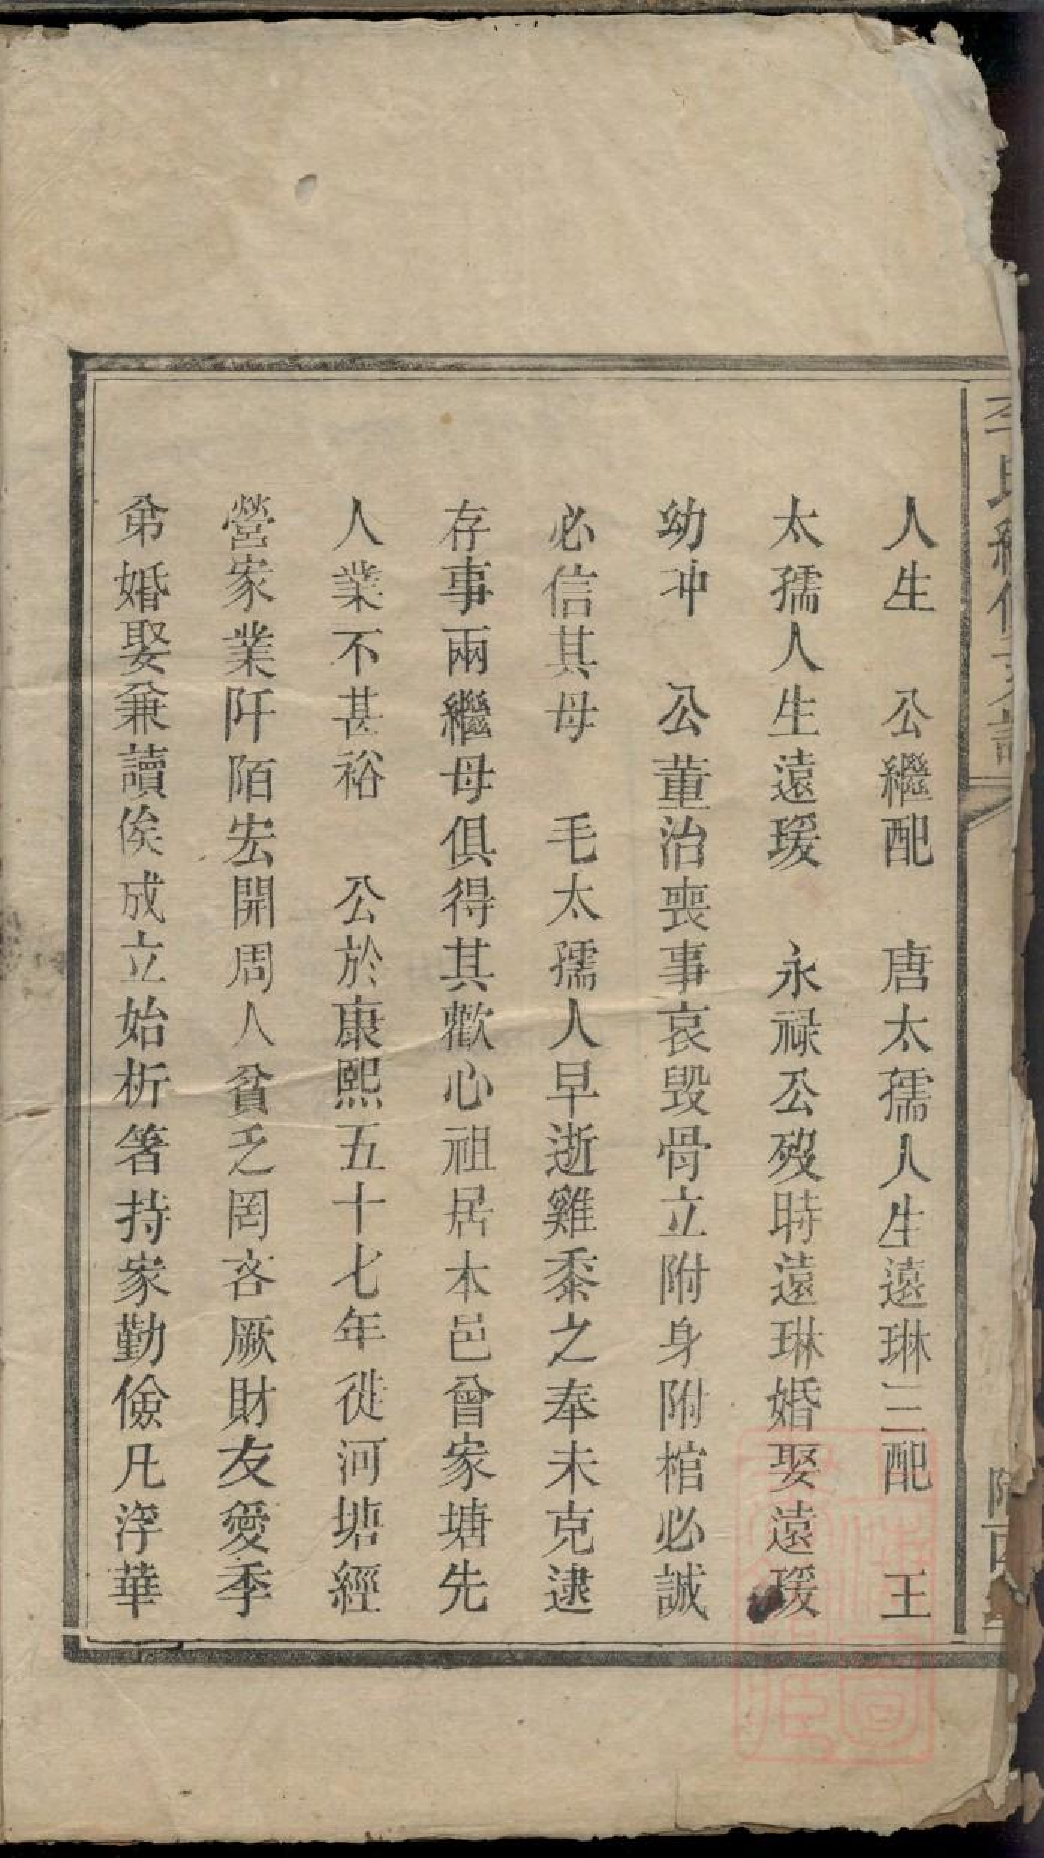 人生　公繼配　唐太孺人生遠琳三配　王
太孺人生遠瑗　永祿公歿時遠琳婚娶遠瑗
幼冲　公董治喪事哀毀骨立附身附棺必誠
必信其母　毛太孺人早逝雞黍之奉未克逮
存事兩繼母俱得其歡心祖居本邑曾家塘先
人業不甚裕　公於康熙五十七年徙河塘經
營家業阡陌宏開周人貧乏罔吝厥財友愛季
弟婚娶兼讀俟成立始析箸持家勤儉凡浮華